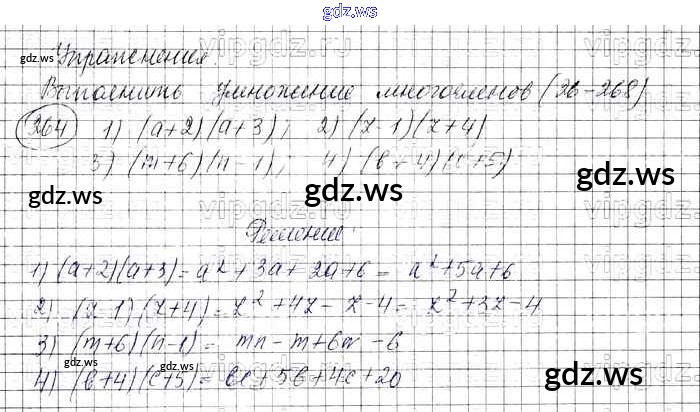 gdz.ws
Упражнения.
Выполнить умножение многочленов (26-268)
264 1) (a+2)(a+3); 2) (z-1)(z+4)
3) (m+6)(n-1); 4) (b+4)(c+5)
gdz.ws gdz.ws gdz.ws
Решение
1) (a+2)(a+3) = a² + 3a + 2a + 6 = a² + 5a + 6
2) (z-1)(z+4) = z² + 4z - z - 4 = z² + 3z - 4
3) (m+6)(n-1) = mn - m + 6n - 6
4) (b+4)(c+5) = bc + 5b + 4c + 20
gdz.ws gdz.ws gdz.ws